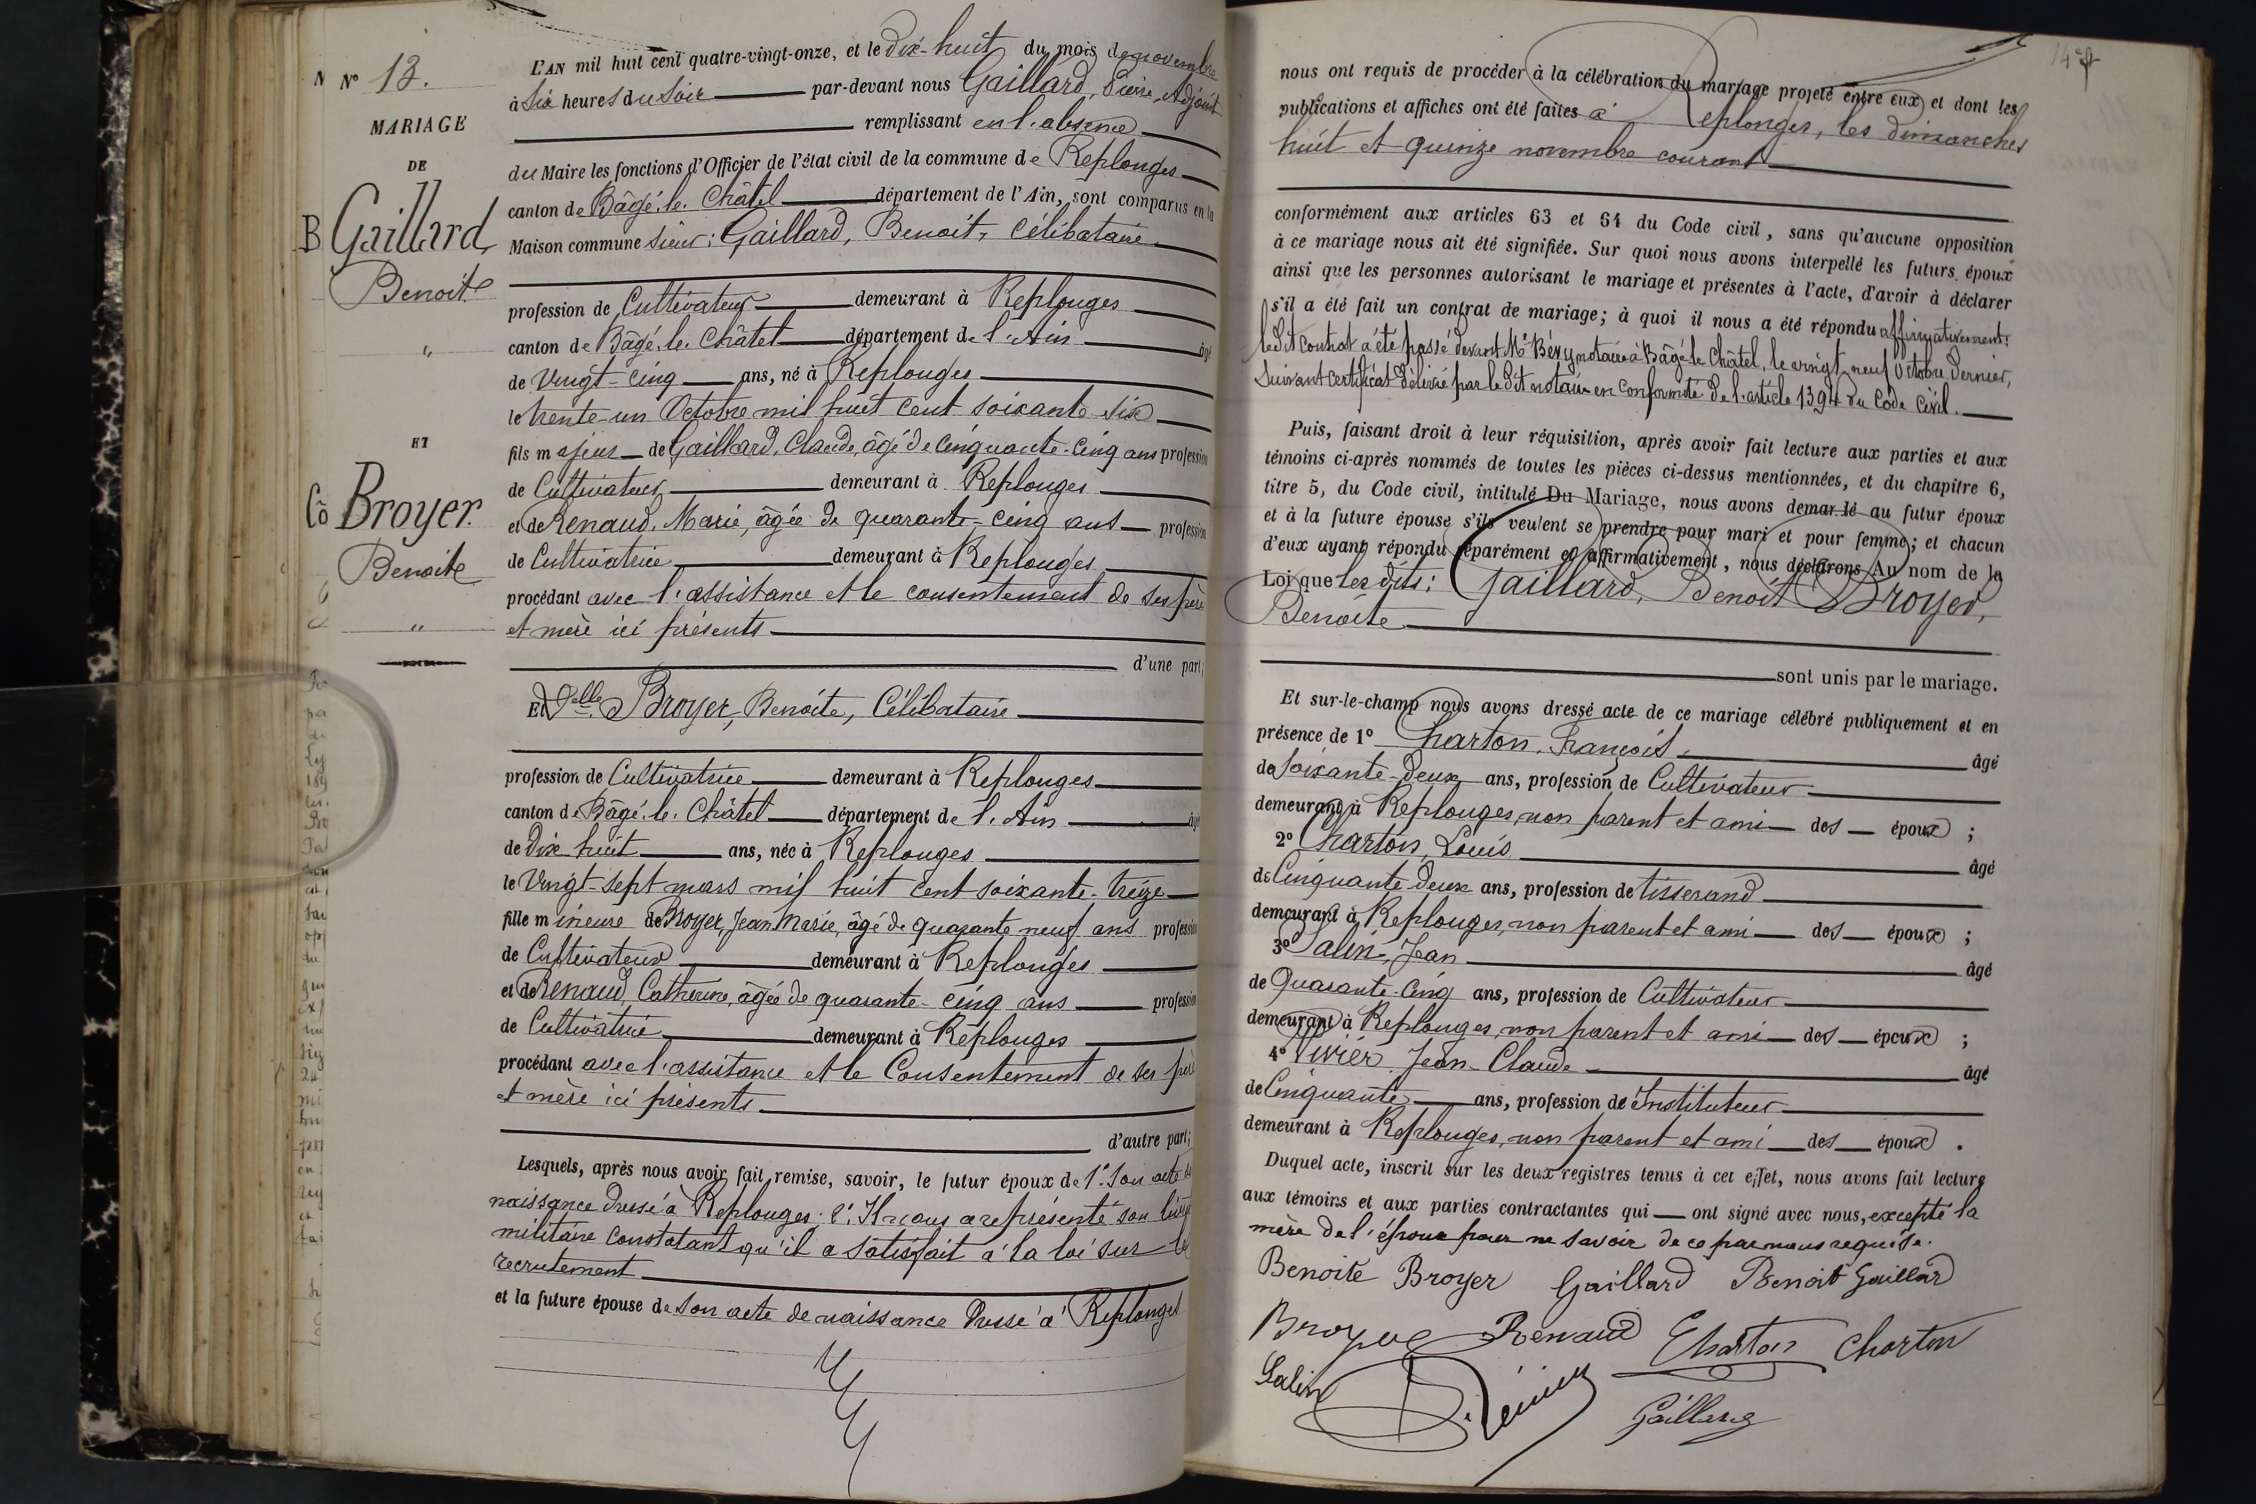 N° 13.
MARIAGE
DE
Gaillard
Benoit
"
ET
Broyer
Benoite
"
L'AN mil huit cent quatre-vingt-onze, et le dix-huit du mois de novembre
à six heures du soir par-devant nous Gaillard, Pierre, Adjoint
remplissant en l'absence
du Maire les fonctions d'Officier de l'état civil de la commune de Replonges
canton de Bâgé-le-Châtel département de l'Ain, sont comparus en la
Maison commune sieur : Gaillard, Benoit, Célibataire
profession de Cultivateur demeurant à Replonges
canton de Bâgé-le-Châtel département de l'Ain âgé
de Vingt-cinq ans, né à Replonges
le trente-un Octobre mil huit cent soixante-six
fils majeur de Gaillard, Claude, âgé de Cinquante-Cinq ans profession
de Cultivateur demeurant à Replonges
et de Renaud, Marie, âgée de quarante-cinq ans profession
de Cultivatrice demeurant à Replonges
procédant avec l'assistance et le consentement de ses père
et mère ici présents
d'une part;
Et Delle Broyer, Benoite, Célibataire
profession de Cultivatrice demeurant à Replonges
canton de Bâgé-le-Châtel département de l'Ain âgée
de Dix huit ans, née à Replonges
le Vingt-sept mars mil huit cent soixante-treize
fille mineure de Broyer, Jean Marie, âgé de quarante neuf ans profession
de Cultivateur demeurant à Replonges
et de Renaud, Catherine, âgée de quarante-cinq ans profession
de Cultivatrice demeurant à Replonges
procédant avec l'assistance et le Consentement de ses père
et mère ici présents
d'autre part;
Lesquels, après nous avoir fait remise, savoir, le futur époux de 1° Son acte de
naissance dressé à Replonges ; 2° Il nous a représenté son livret
militaire constatant qu'il a satisfait à la loi sur le
recrutement
et la future épouse de son acte de naissance Dressé à Replonges
nous ont requis de procéder à la célébration du mariage projeté entre eux et dont les
publications et affiches ont été faites à Replonges, les dimanches
huit et quinze novembre courant
conformément aux articles 63 et 64 du Code civil, sans qu'aucune opposition
à ce mariage nous ait été signifiée. Sur quoi nous avons interpellé les futurs époux
ainsi que les personnes autorisant le mariage et présentes à l'acte, d'avoir à déclarer
s'il a été fait un contrat de mariage; à quoi il nous a été répondu affirmativement.
le dit contrat a été passé devant Me Béry notaire à Bâgé-le-Châtel, le vingt-neuf Octobre dernier,
suivant certificat délivré par le dit notaire en conformité de l'article 1394 du Code Civil.
Puis, faisant droit à leur réquisition, après avoir fait lecture aux parties et aux
témoins ci-après nommés de toutes les pièces ci-dessus mentionnées, et du chapitre 6,
titre 5, du Code civil, intitulé Du Mariage, nous avons demandé au futur époux
et à la future épouse s'ils veulent se prendre pour mari et pour femme; et chacun
d'eux ayant répondu séparément et affirmativement, nous déclarons Au nom de la
Loi que les dits : Gaillard, Benoit & Broyer,
Benoite
sont unis par le mariage.
Et sur-le-champ nous avons dressé acte de ce mariage célébré publiquement et en
présence de 1° Charton, François, âgé
de soixante-deux ans, profession de Cultivateur
demeurant à Replonges, non parent et ami des époux ;
2° Charton, Louis âgé
de Cinquante-deux ans, profession de tisserand
demeurant à Replonges, non parent et ami des époux ;
3° Salin, Jean âgé
de Quarante-Cinq ans, profession de Cultivateur
demeurant à Replonges, non parent et ami des époux ;
4° Jean-Claude âgé
de Cinquante ans, profession de Instituteur
demeurant à Replonges, non parent et ami des époux .
Duquel acte, inscrit sur les deux registres tenus à cet effet, nous avons fait lecture
aux témoins et aux parties contractantes qui ont signé avec nous, excepté la
mère de l'épouse pour ne savoir de ce par nous requise.
Benoite Broyer Gaillard Benoit Gaillard
Broyer Renaud Charton Charton
Salin
Gaillard